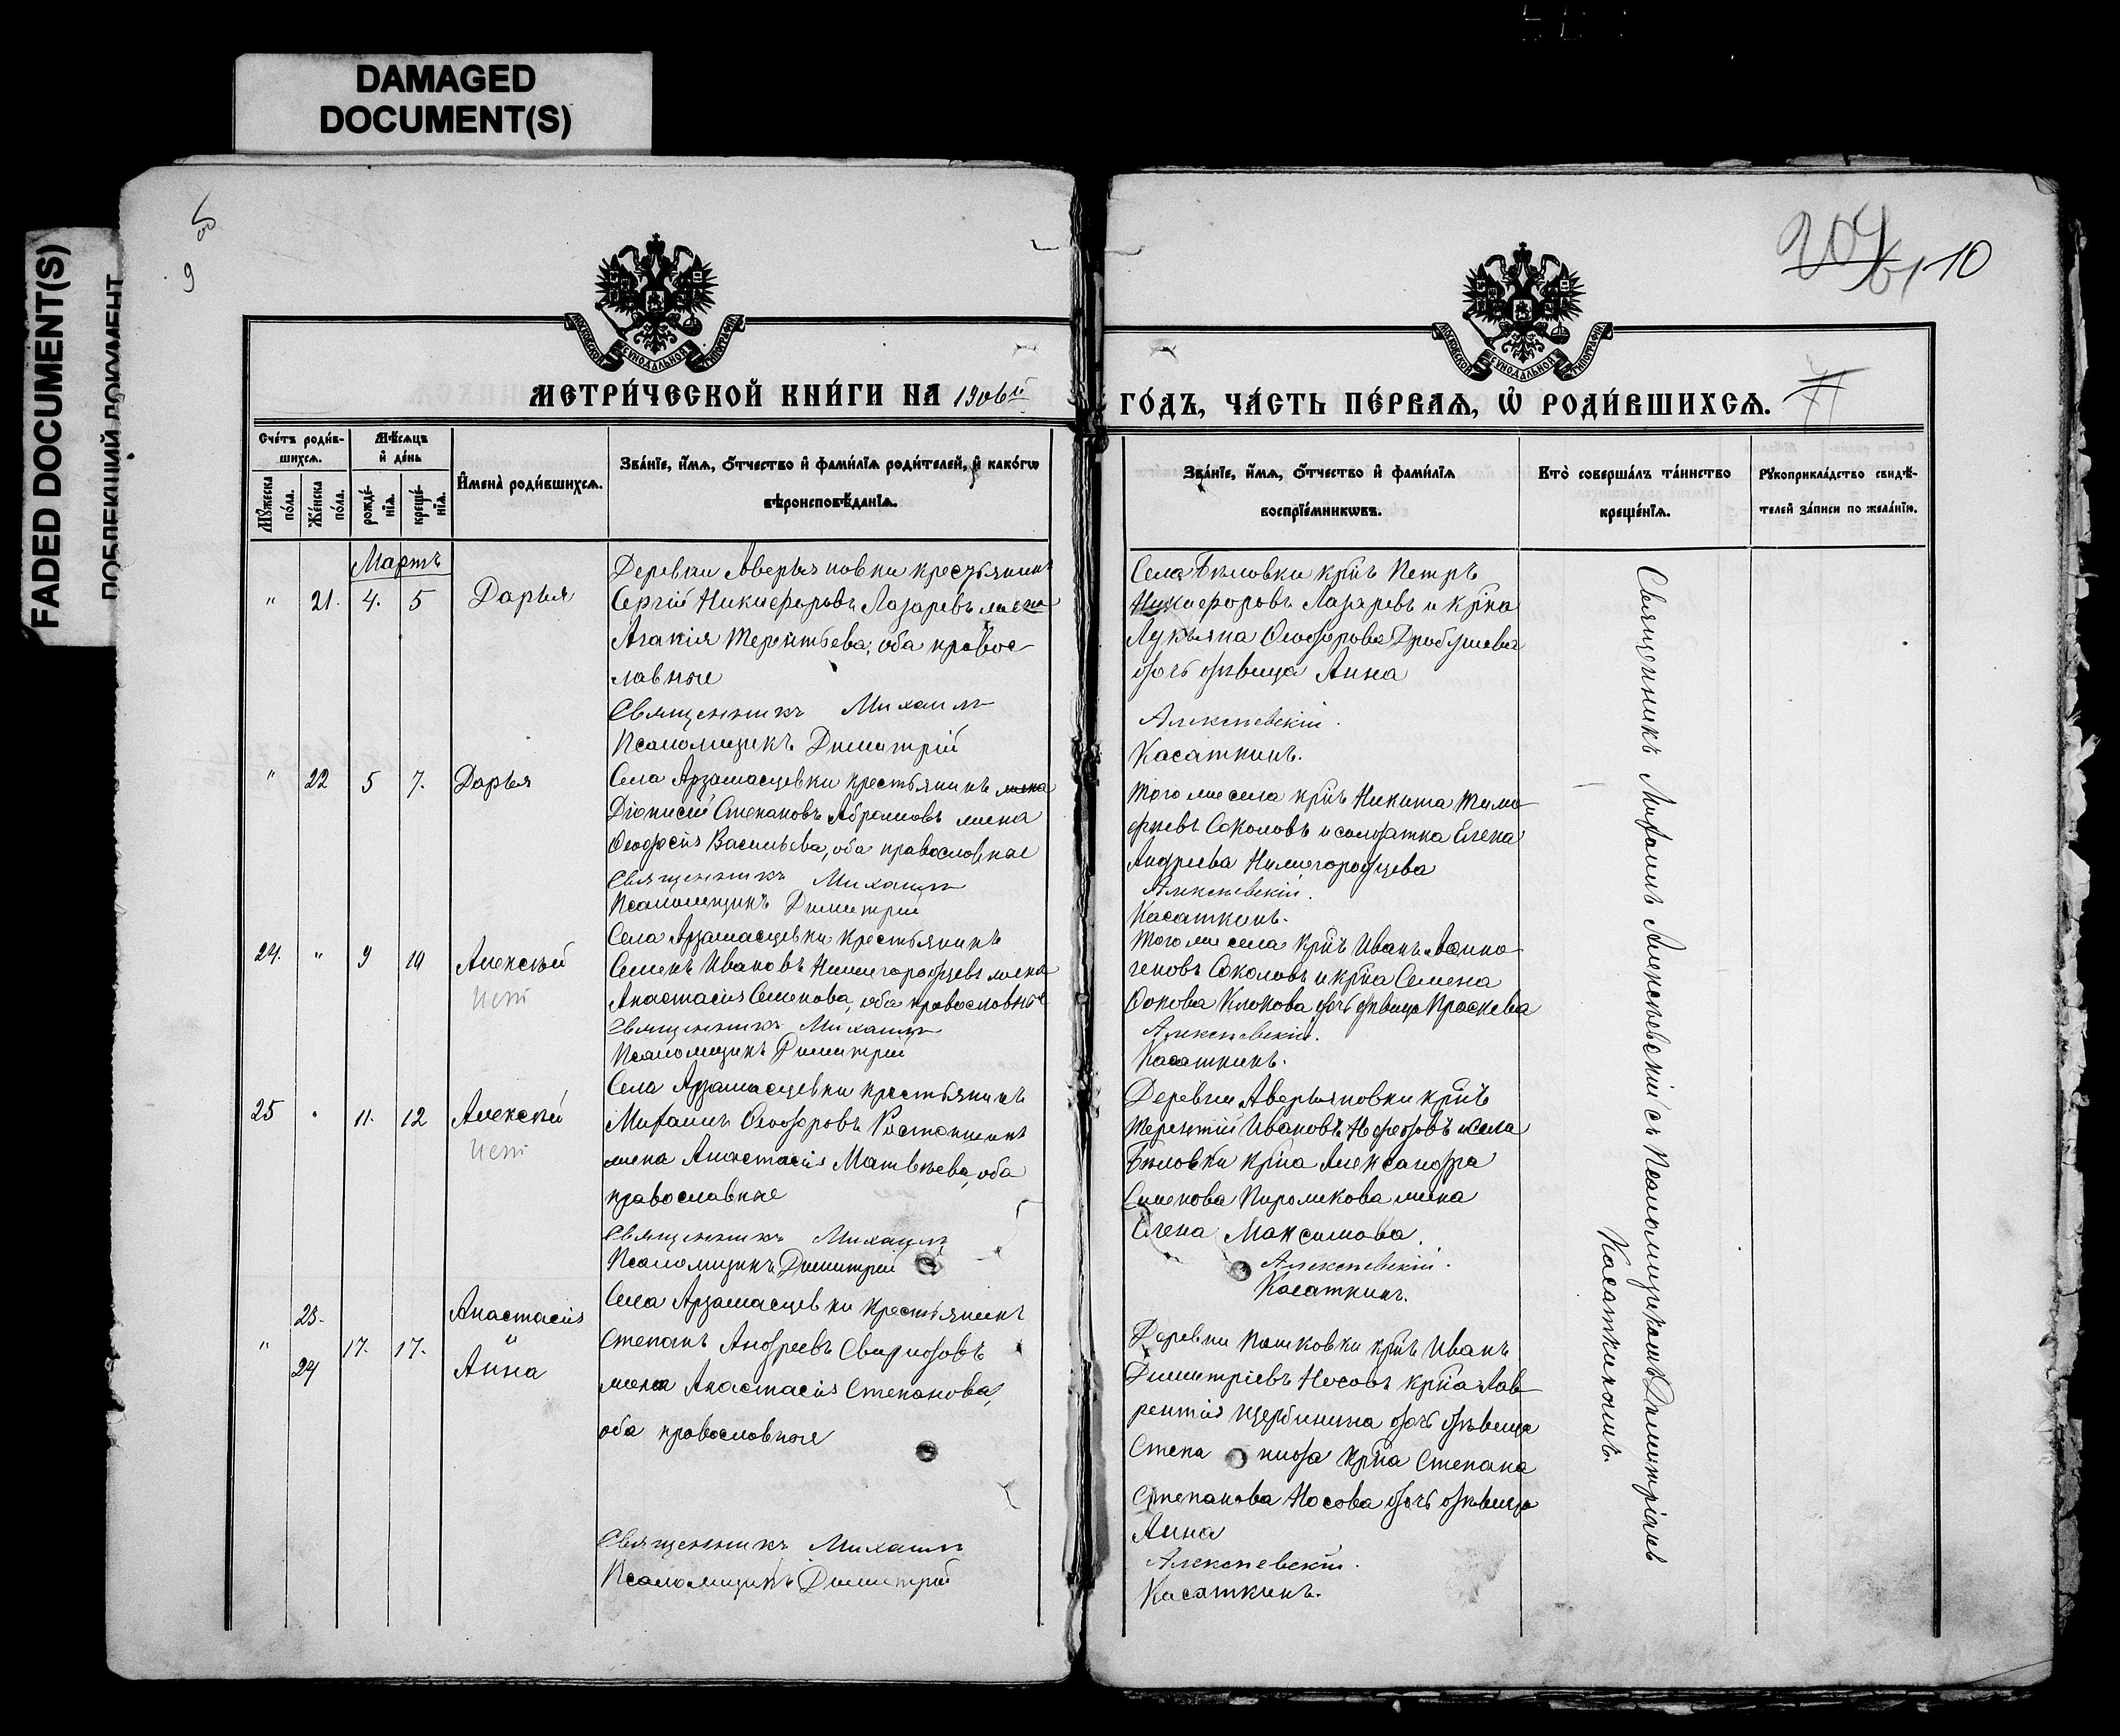 DAMAGED
DOCUMENT(S)
FADED DOCUMENT(S)
ПОБЛЕКШИЙ ДОКУМЕНТ
об
9
204
10
МОСКОВСКОЙ СѴНОДАЛЬНОЙ ТИПОГРАФІИ
МОСКОВСКОЙ СѴНОДАЛЬНОЙ ТИПОГРАФІИ
МЕТРИ́ЧЕСКОЙ КНИ́ГИ НА 1906й ГО́ДЪ, ЧА́СТЬ ПЕ́РВАѦ, Ѽ РОДИ́ВШИХСѦ.
Сче́тъ роди́в-
шихсѧ.
Мѣ́сѧцъ
и҆ де́нь
Мꙋ́жеска по́ла.
Же́нска по́ла.
рожде́-нїѧ.
креще́-нїѧ.
И҆мена̀ роди́вшихсѧ.
Зва́нїе, и҆́мѧ, ѻ҆́тчество и҆ фами́лїѧ роди́телей, и҆ како́гѡ
вѣроисповѣ́данїѧ.
Зва́нїе, и҆́мѧ, ѻ҆́тчество и҆ фами́лїѧ
воспрїе́мникѡвъ.
Кто̀ соверша́лъ та́инство
креще́нїѧ.
Рꙋкоприкла́дство свидѣ́-
телей за́писи по жела́нїю.
Мартъ
" 21. 4. 5 Дарья
Деревни Аверьяновки крестьянинъ
Сергій Никифоровъ Лазаревъ жена
Агапія Терентьева, оба правос-
лавные
Священникъ Михаилъ
Псаломщикъ Димитрій
Села Бѣловки крнъ Петръ
Никифоровъ Лазаревъ и крна
Лукьяна Ѳеодорова Дробушева
дочь дѣвица Анна
Алексѣевскій.
Касаткинъ.
" 22 5 7. Дарья
Села Арзамасцевки крестьянинъ жена
Діонисій Степановъ Абрамовъ жена
Ѳеодосія Васильева, оба православные
Священникъ Михаилъ
Псаломщикъ Димитрій
Того же села крнъ Никита Тимо-
фѣевъ Соколовъ и солдатка Елена
Андреева Нижегородцева
Алексѣевскій.
Касаткинъ.
24. " 9 10 Алексѣй
Села Арзамасцевки крестьянинъ
Семенъ Ивановъ Нижегородцевъ жена
Анастасія Семенова, оба православные
Священникъ Михаилъ
Псаломщикъ Димитрій
Того же села крнъ Иванъ Аѳино-
геновъ Соколовъ и крна Семена
Ѳокова Клокова дочь дѣвица Праскева
Алексѣевскій.
Касаткинъ.
25 " 11. 12 Алексѣй
Села Арзамасцевки крестьянинъ
Михаилъ Ѳеодоровъ Растопшинъ
жена Анастасія Матвѣева, оба
православные
Священникъ Михаилъ
Псаломщикъ Димитрій
Деревни Аверьяновки крнъ
Терентій Ивановъ Нефедовъ и села
Бѣловки крна Александра
Семенова Пирожкова жена
Елена Максимова.
Алексѣевскій.
Касаткинъ.
23. Анастасія
" 17. 17. "
24 Анна
Села Арзамасцевки крестьянинъ
Степанъ Андреевъ Свиридовъ
жена Анастасія Степанова,
оба православные
Священникъ Михаилъ
Псаломщикъ Димитрій
Деревни Пашковки крнъ Иванъ
Димитріевъ Носовъ крна Лав-
рентія Щербинина дочь дѣвица
Степанида крна Степана
Степанова Носова дочь дѣвица
Анна
Алексѣевскій.
Касаткинъ.
Священникъ Михаилъ Алексѣевскій съ Псаломщикомъ Димитріемъ
Касаткинымъ.